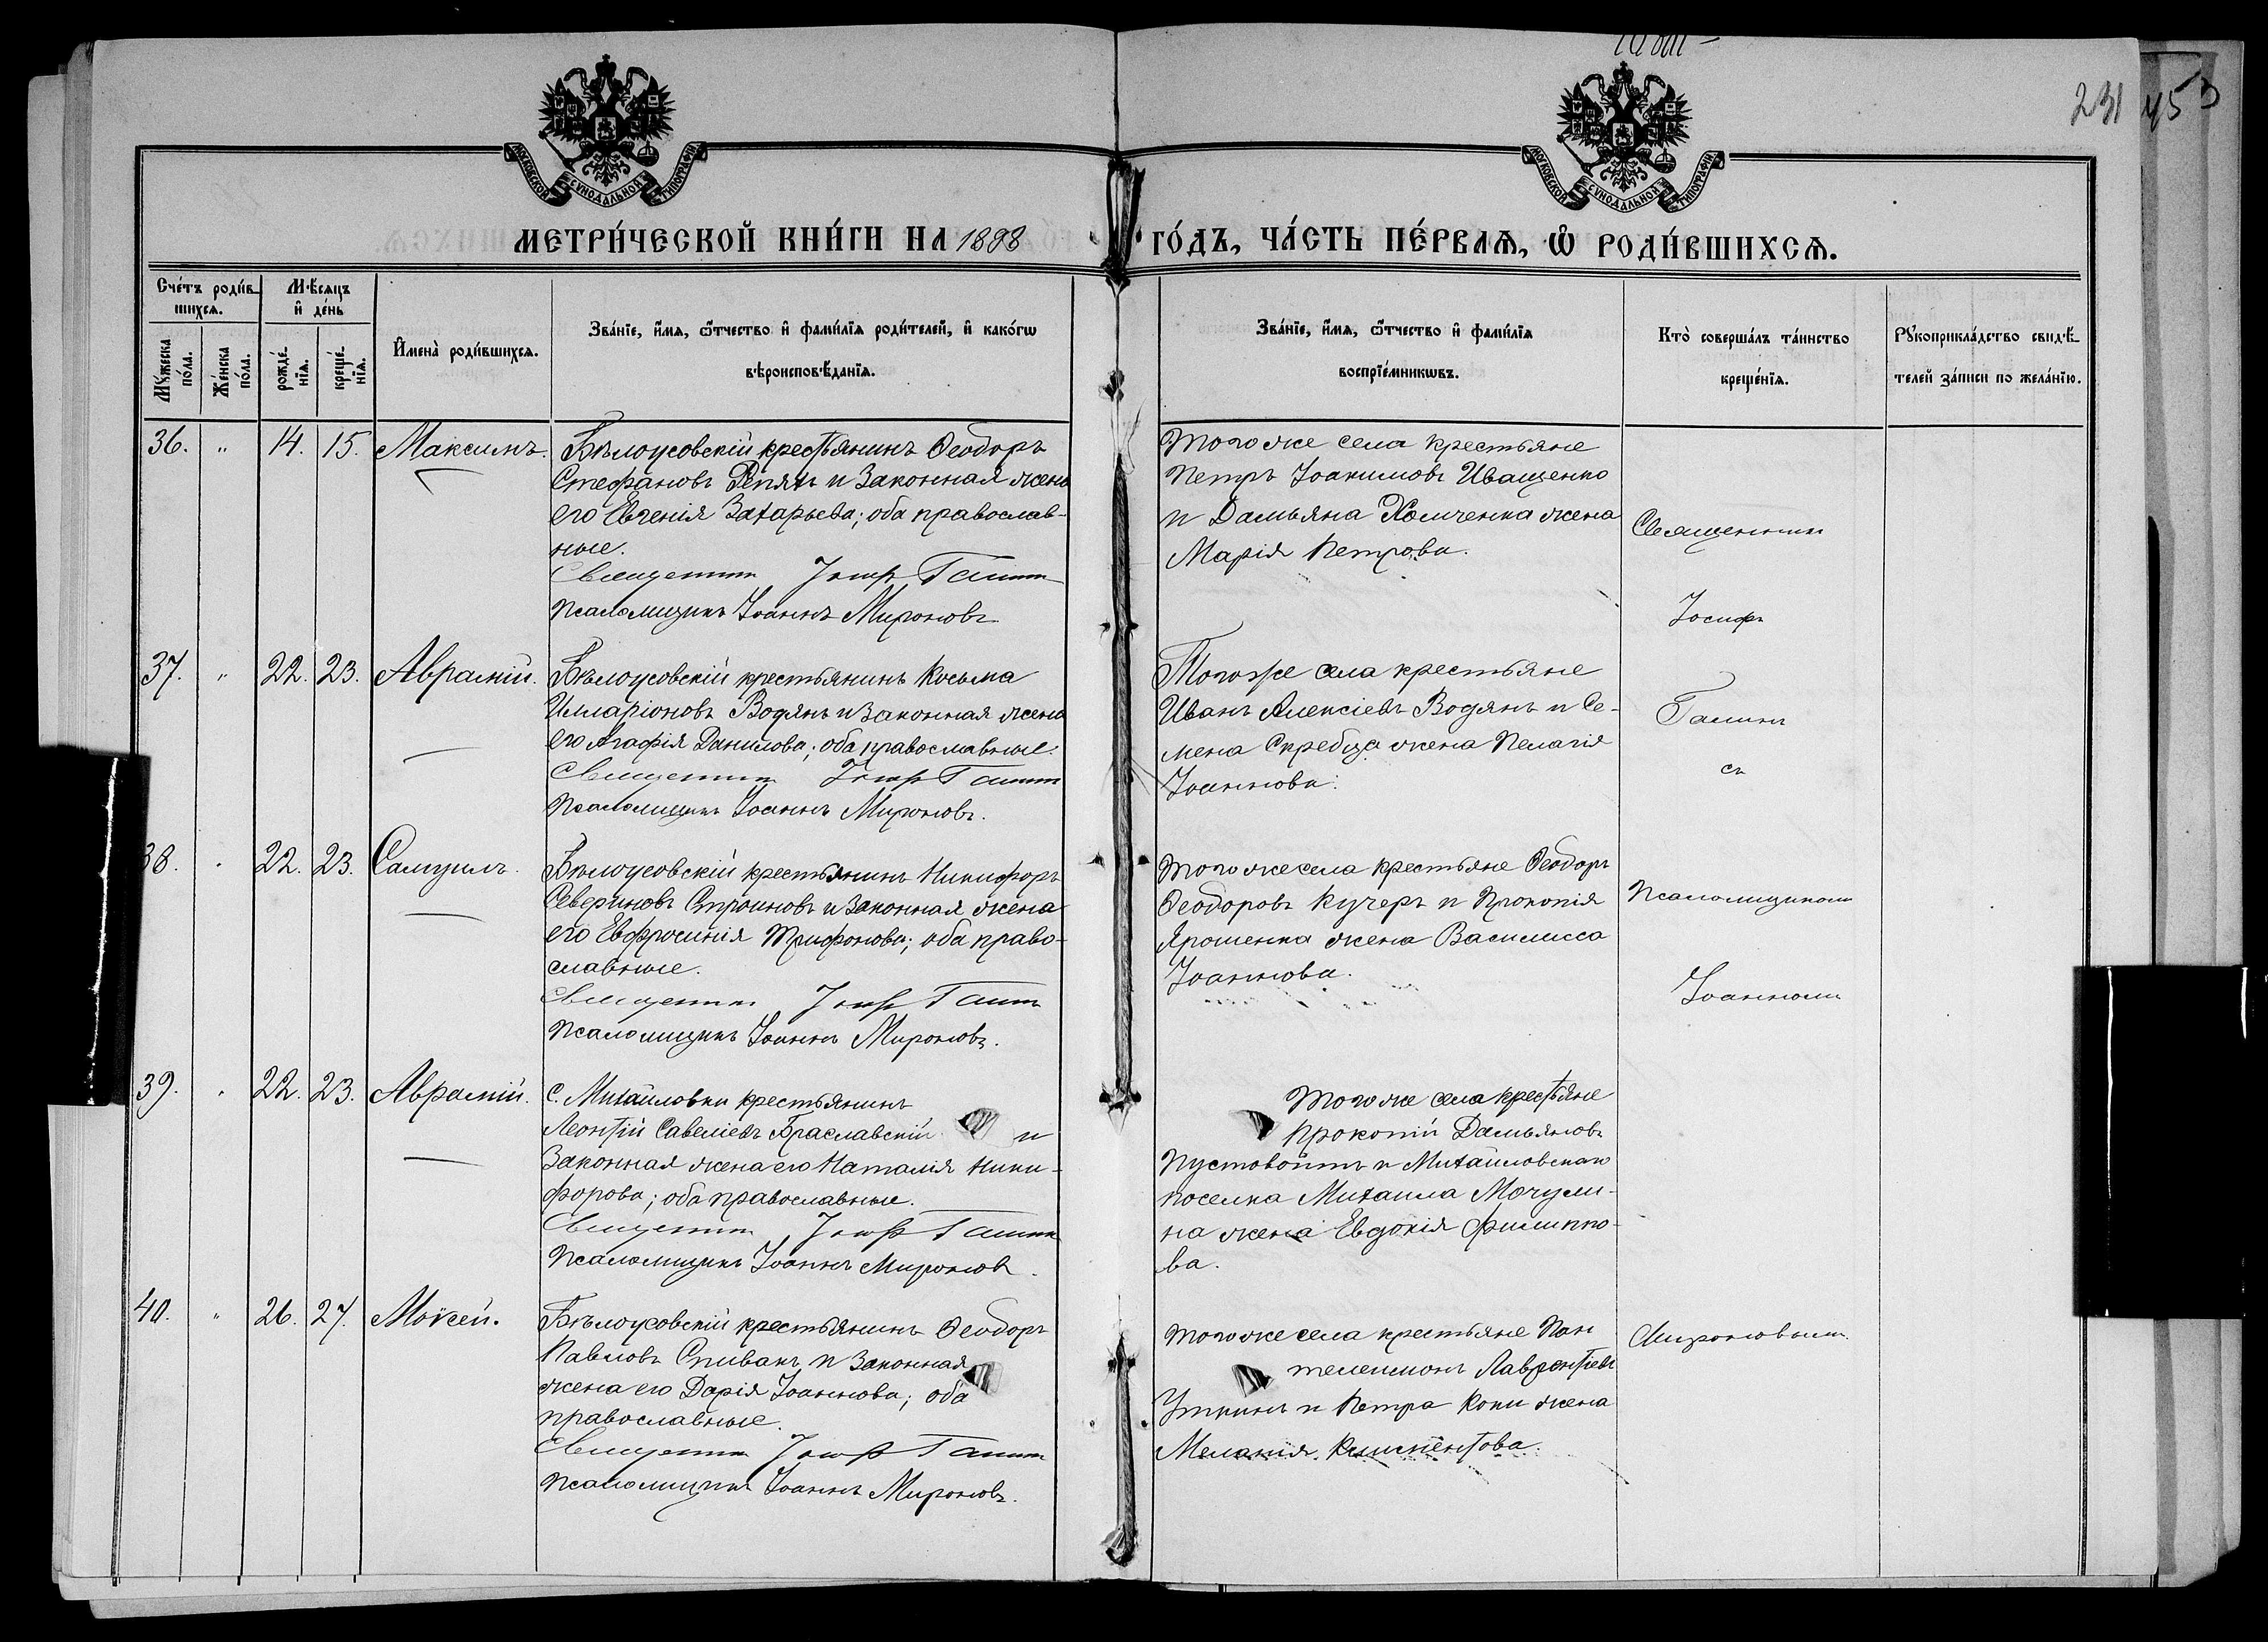 231 453
МОСКОВСКОЙ СѴНОДАЛЬНОЙ ТИПОГРАФІИ
МОСКОВСКОЙ СѴНОДАЛЬНОЙ ТИПОГРАФІИ
МЕТРИ́ЧЕСКОЙ КНИ́ГИ НА 1898 ГО́ДЪ, ЧА́СТЬ ПЕ́РВАѦ, Ѡ҆ РОДИ́ВШИХСѦ.
Сче́тъ роди́в-
шихсѧ.
Мꙋ́жеска по́ла.
Же́нска по́ла.
Мѣ́сяцъ
и҆ де́нь
рожде́-
нїѧ.
креще́-
нїѧ.
И҆мена̀ роди́вшихсѧ.
Зва́нїе, и҆́мѧ, ѻ҆́тчество и҆ фами́лїѧ роди́телей, и҆ како́гѡ
вѣроисповѣ́данїѧ.
Зва́нїе, и҆́мѧ, ѻ҆́тчество и҆ фами́лїѧ
воспрїе́мникѡвъ.
Кто̀ соверша́лъ та́инство
креще́нїѧ.
Рꙋкоприкла́дство свидѣ́-
телей за́писи по жела́нїю.
36. " 14. 15. Максимъ.
Бѣлоусовскій крестьянинъ Ѳеодоръ
Стефановъ Репянъ и законная жена
его Евгенія Захарьева; оба православ-
ные.
Священникъ Іосифъ Галин
Псаломщикъ Іоаннъ Мироновъ
Того же села крестьяне
Петръ Іоакимовъ Иващенко
и Дамьяна Хомченка жена
Марія Петрова.
Священникъ
Іосифъ
37. " 22. 23. Аврамій.
Бѣлоусовскій крестьянинъ Косьма
Илларіоновъ Водянъ и законная жена
его Агафія Данилова; оба православные.
Священникъ Іосифъ Галин
Псаломщикъ Іоаннъ Мироновъ.
Того же села крестьяне
Иванъ Алексіевъ Водянъ и Се-
мена Скребца жена Пелагія
Іоаннова.
Галинъ
съ
38. " 22. 23. Самуилъ.
Бѣлоусовскій крестьянинъ Никифоръ
Севериновъ Строиновъ и законная жена
его Евфросинія Трифонова; оба право-
славные.
Священникъ Іосифъ Галин
Псаломщикъ Іоаннъ Мироновъ.
Того же села крестьяне Ѳеодоръ
Ѳеодоровъ Кучеръ и Прокопія
Ярошенка жена Василисса
Іоаннова.
Псаломщикомъ
Іоанномъ
39. " 22. 23. Аврамій.
С. Михайловки крестьянинъ
Леонтій Савеліевъ Браславскій и
законная жена его Наталія Ники-
форова; оба православные.
Священникъ Іосифъ Галин
Псаломщикъ Іоаннъ Мироновъ.
Того же села крестьяне
Прокопій Дамьяновъ
Пустовойтъ и Михайловскаго
поселка Михаила Мочули-
на жена Евдокія Филиппо-
ва.
40. " 26. 27. Моѵсей.
Бѣлоусовскій крестьянинъ Ѳеодоръ
Павловъ Спивакъ и законная
жена его Дарія Іоаннова; оба
православные.
Священникъ Іосифъ Галин
Псаломщикъ Іоаннъ Мироновъ.
Того же села крестьяне Пан
телеимонъ Лаврентіевъ
Уткинъ и Петра Коки жена
Меланія Климентова.
Мироновымъ.